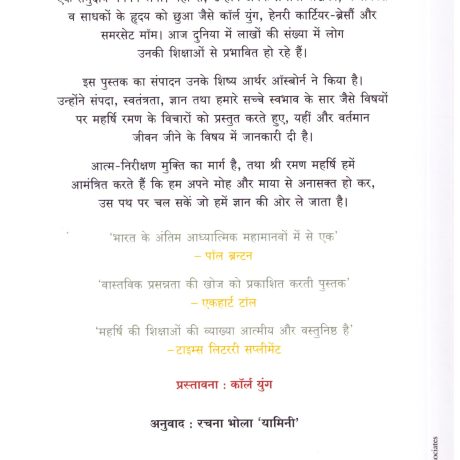 व साधकों के हृदय को छुआ जैसे कॉर्ल युंग, हेनरी कार्टियर-ब्रेसौं और
समरसेट मॉम। आज दुनिया में लाखों की संख्या में लोग
उनकी शिक्षाओं से प्रभावित हो रहे हैं।
इस पुस्तक का संपादन उनके शिष्य आर्थर ऑस्बोर्न ने किया है।
उन्होंने संपदा, स्वतंत्रता, ज्ञान तथा हमारे सच्चे स्वभाव के सार जैसे विषयों
पर महर्षि रमण के विचारों को प्रस्तुत करते हुए, यहीं और वर्तमान
जीवन जीने के विषय में जानकारी दी है।
आत्म-निरीक्षण मुक्ति का मार्ग है, तथा श्री रमण महर्षि हमें
आमंत्रित करते हैं कि हम अपने मोह और माया से अनासक्त हो कर,
उस पथ पर चल सकें जो हमें ज्ञान की ओर ले जाता है।
'भारत के अंतिम आध्यात्मिक महामानवों में से एक'
– पॉल ब्रन्टन
'वास्तविक प्रसन्नता की खोज को प्रकाशित करती पुस्तक'
– एकहार्ट टॉल
'महर्षि की शिक्षाओं की व्याख्या आत्मीय और वस्तुनिष्ठ है'
–टाइम्स लिटररी सप्लीमेंट
प्रस्तावना : कॉर्ल युंग
अनुवाद : रचना भोला 'यामिनी'
ociates